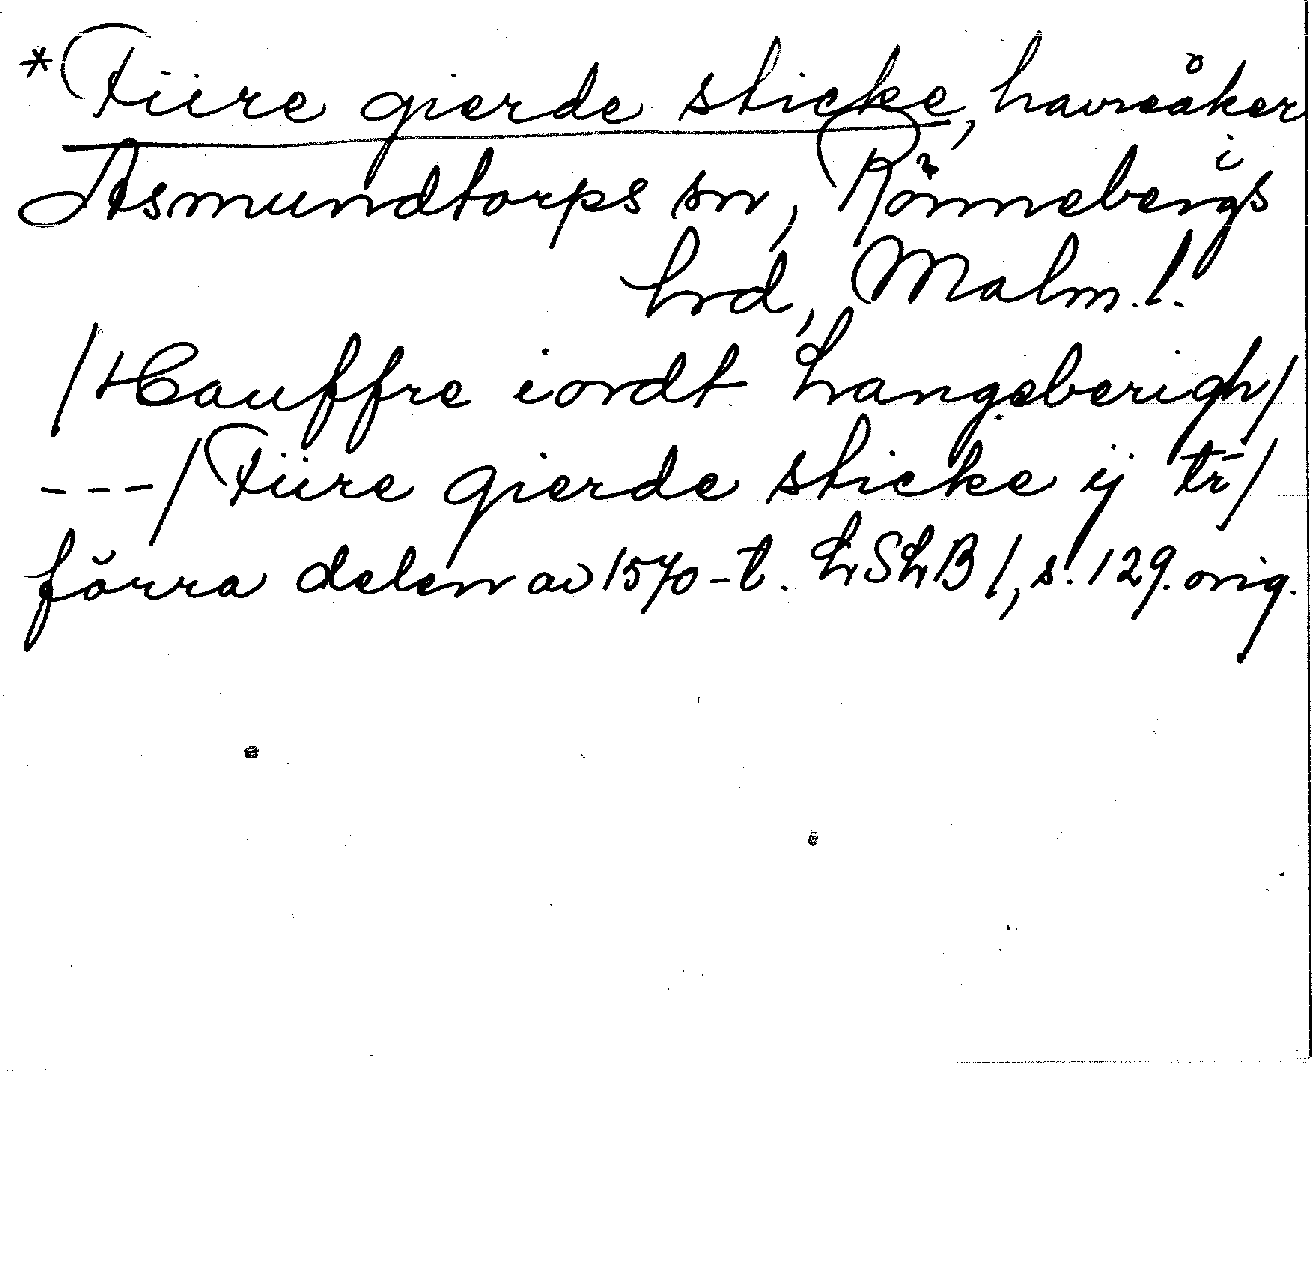 *Fiire gierde sticke, havreåker i
Asmundtorps sn, Rönnebergs
hrd, Malm. l.
/Hauffre iordt Langeberigh/
---/Fiire gierde sticke ij tr/
förra delen av 1570-t. LSLB 1, s. 129. orig.